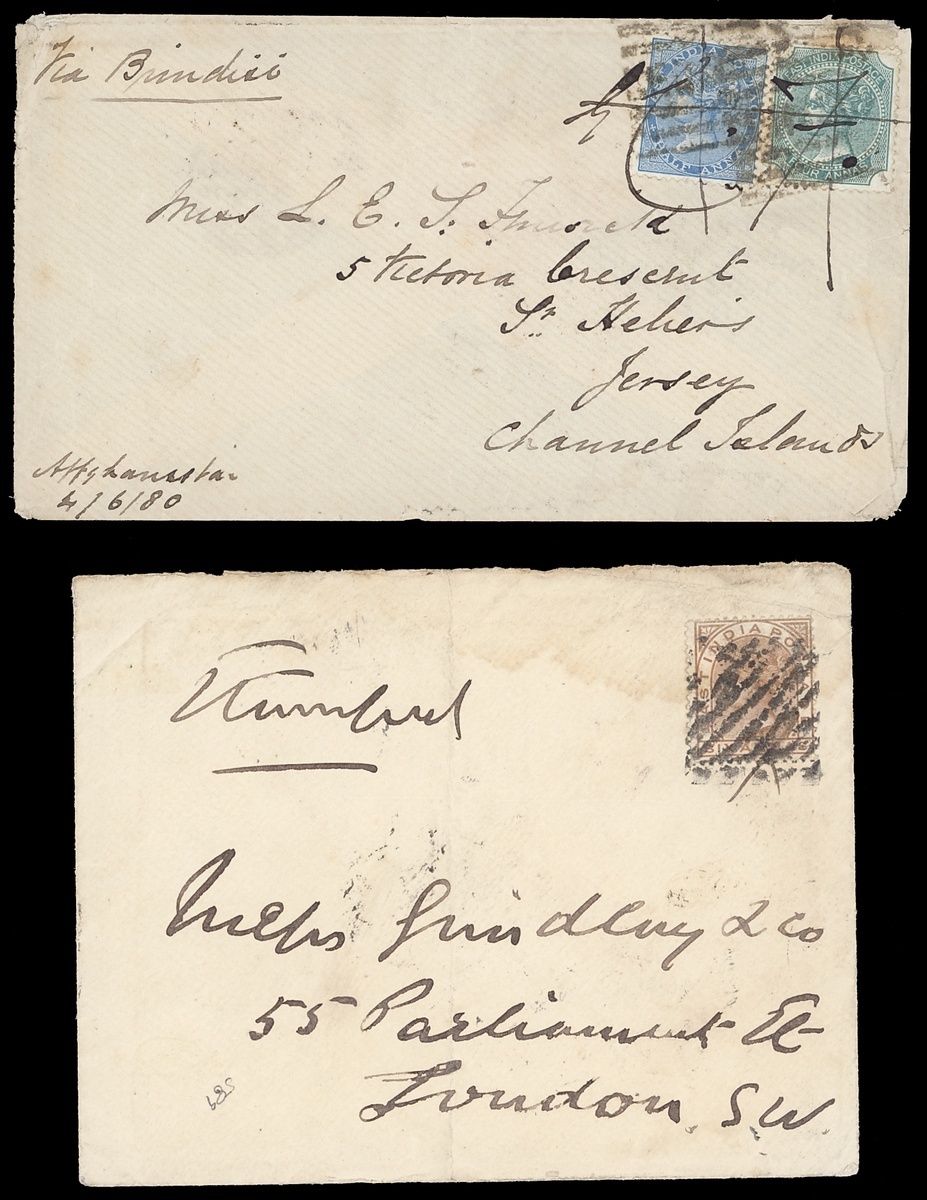 Via Brindisi
INDIA
HALF ANNA
INDIA POSTAGE
FOUR ANNAS
Miss L. E. S.
5 Victoria Crescent
St. Heliers
Jersey
Channel Islands
Affghanistan
4/6/80
ST INDIA PO
Messrs Grindlay & Co
55 Parliament St
London. S.W.